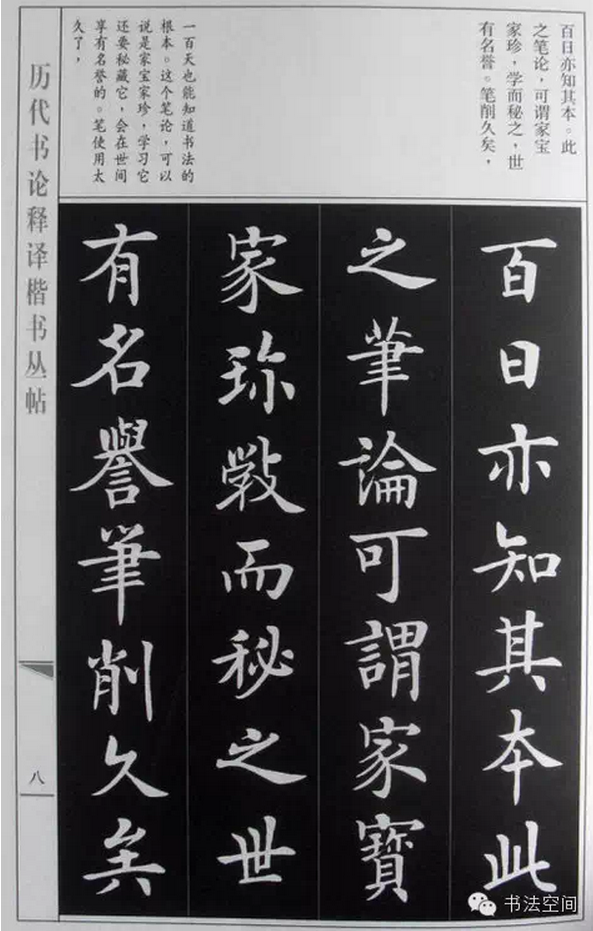 百日亦知其本。此
之笔论，可谓家宝
家珍，学而秘之，世
有名誉。笔削久矣，
一百天也能知道书法的
根本。这个笔论，可以
说是家宝家珍，学习它
还要秘藏它，会在世间
享有名誉的。笔使用太
久了，
百日亦知其本此
之筆論可謂家寶
家珎斅而秘之世
有名譽筆削久矣
历代书论释译楷书丛帖
八
书法空间